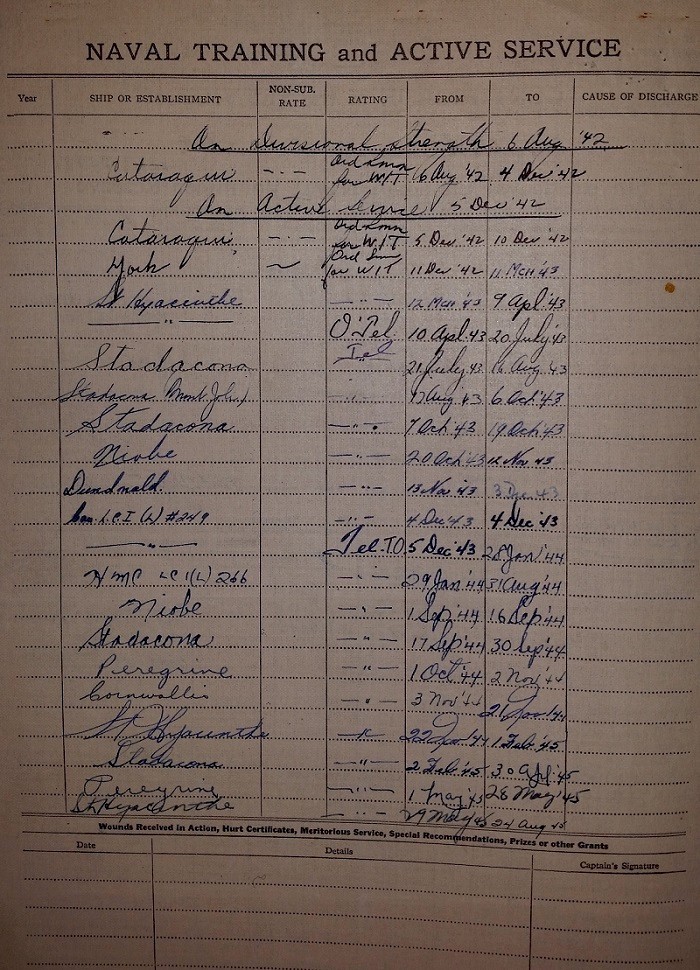 NAVAL TRAINING and ACTIVE SERVICE
Year SHIP OR ESTABLISHMENT NON-SUB. RATE RATING FROM TO CAUSE OF DISCHARGE
On Divisional strength 6 Aug '42
Cataraqui -·- Ord Smn for W/T 6 Aug '42 4 Dec '42
On Active Service 5 Dec '42
Cataraqui -·- Ord Smn for W/T 5 Dec '42 10 Dec '42
York ~ Ord Smn for W/T 11 Dec '42 11 Mch '43
St Hyacinthe —"— 12 Mch '43 9 Apl '43
—"— O/Tel 10 Apl '43 20 July '43
Stadacona Tel 21 July 43 Aug 43
Stadacona Mont Joli —"— Aug 43 6 Oct '43
Stadacona —"— 7 Oct '43 19 Oct '43
Niobe —"— 20 Oct '43 12 Nov 43
Dundonald —"— 13 Nov '43 3 Dec 43
L.C.I (L) #249 —"— 4 Dec '43 4 Dec '43
—"— Tel T.O. 5 Dec '43 28 Jan '44
HMC LCI(L) 266 —"— 29 Jan '44 31 Aug '44
Niobe —"— 1 Sep '44 16 Sep '44
Stadacona —"— 17 Sep '44 30 Sep '44
Peregrine —"— 1 Oct '44 2 Nov '44
Cornwallis 3 Nov '44 21 Nov '44
St Hyacinthe —"— 22 Nov '44 1 Feb '45
Stadacona —"— 2 Feb '45 30 Apl '45
Peregrine —"— 1 May '45 28 May '45
St Hyacinthe —"— 29 May 45 24 Aug 45
Wounds Received in Action, Hurt Certificates, Meritorious Service, Special Recommendations, Prizes or other Grants
Date Details Captain's Signature